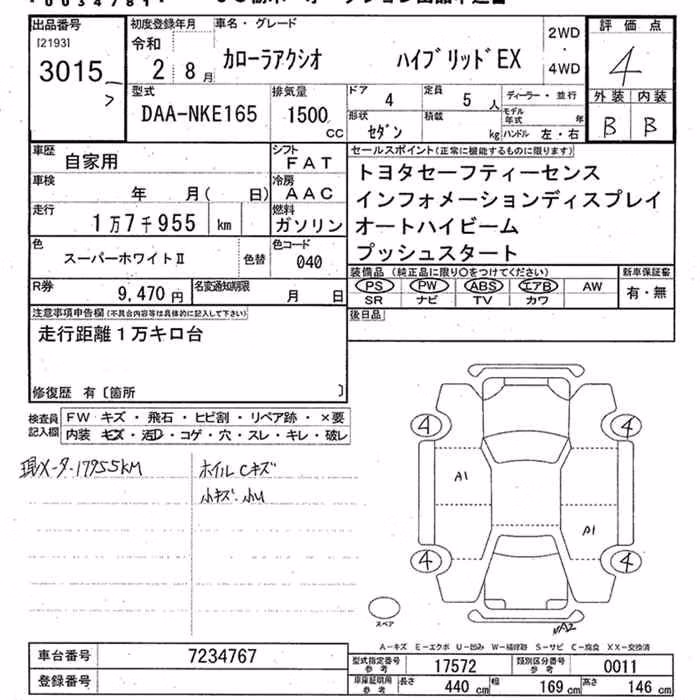 出品番号
[2193]
3015
初度登録年月
令和
2年 8月
車名・グレード
カローラアクシオ ハイブリッドEX
2WD
・
4WD
評価点
4
外装 内装
B B
型式
DAA-NKE165
排気量
1500
CC
ドア
4
定員
5 人
形状
セダン
積載
kg
ディーラー・並行
モデル年式 年
ハンドル 左・右
車歴
自家用
シフト
FAT
車検
年 月( 日)
冷房
AAC
走行
1万7千955 km
燃料
ガソリン
色
スーパーホワイトⅡ
色替
色コード
040
R券
9,470 円
名変通知期限
月 日
セールスポイント(正常に機能するものに限ります)
トヨタセーフティーセンス
インフォメーションディスプレイ
オートハイビーム
プッシュスタート
装備品 (純正品に限り○をつけてください)
PS PW ABS エアB AW
SR ナビ TV カワ
新車保証書
有・無
後日品
注意事項申告欄(不具合内容等は具体的に記入して下さい)
走行距離1万キロ台
修復歴 有〔箇所 〕
検査員
記入欄
FW キズ・飛石・ヒビ割・リペア跡・×要
内装 キズ・汚レ・コゲ・穴・スレ・キレ・破レ
現メーター17955KM
ホイルCキズ
小キズ・小U
4 4
A1
A1
4 4
スペア
A2
A-キズ E-エクボ U-凹み W-補修跡 S-サビ C-腐食 XX-交換済
車台番号
7234767
登録番号
型式指定番号
参考
17572
類別区分番号
参考
0011
車庫証明用
参考
長さ 440 cm 幅 169 cm 高さ 146 cm